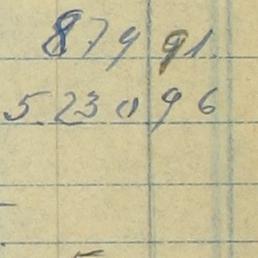 879 91
5 230 96